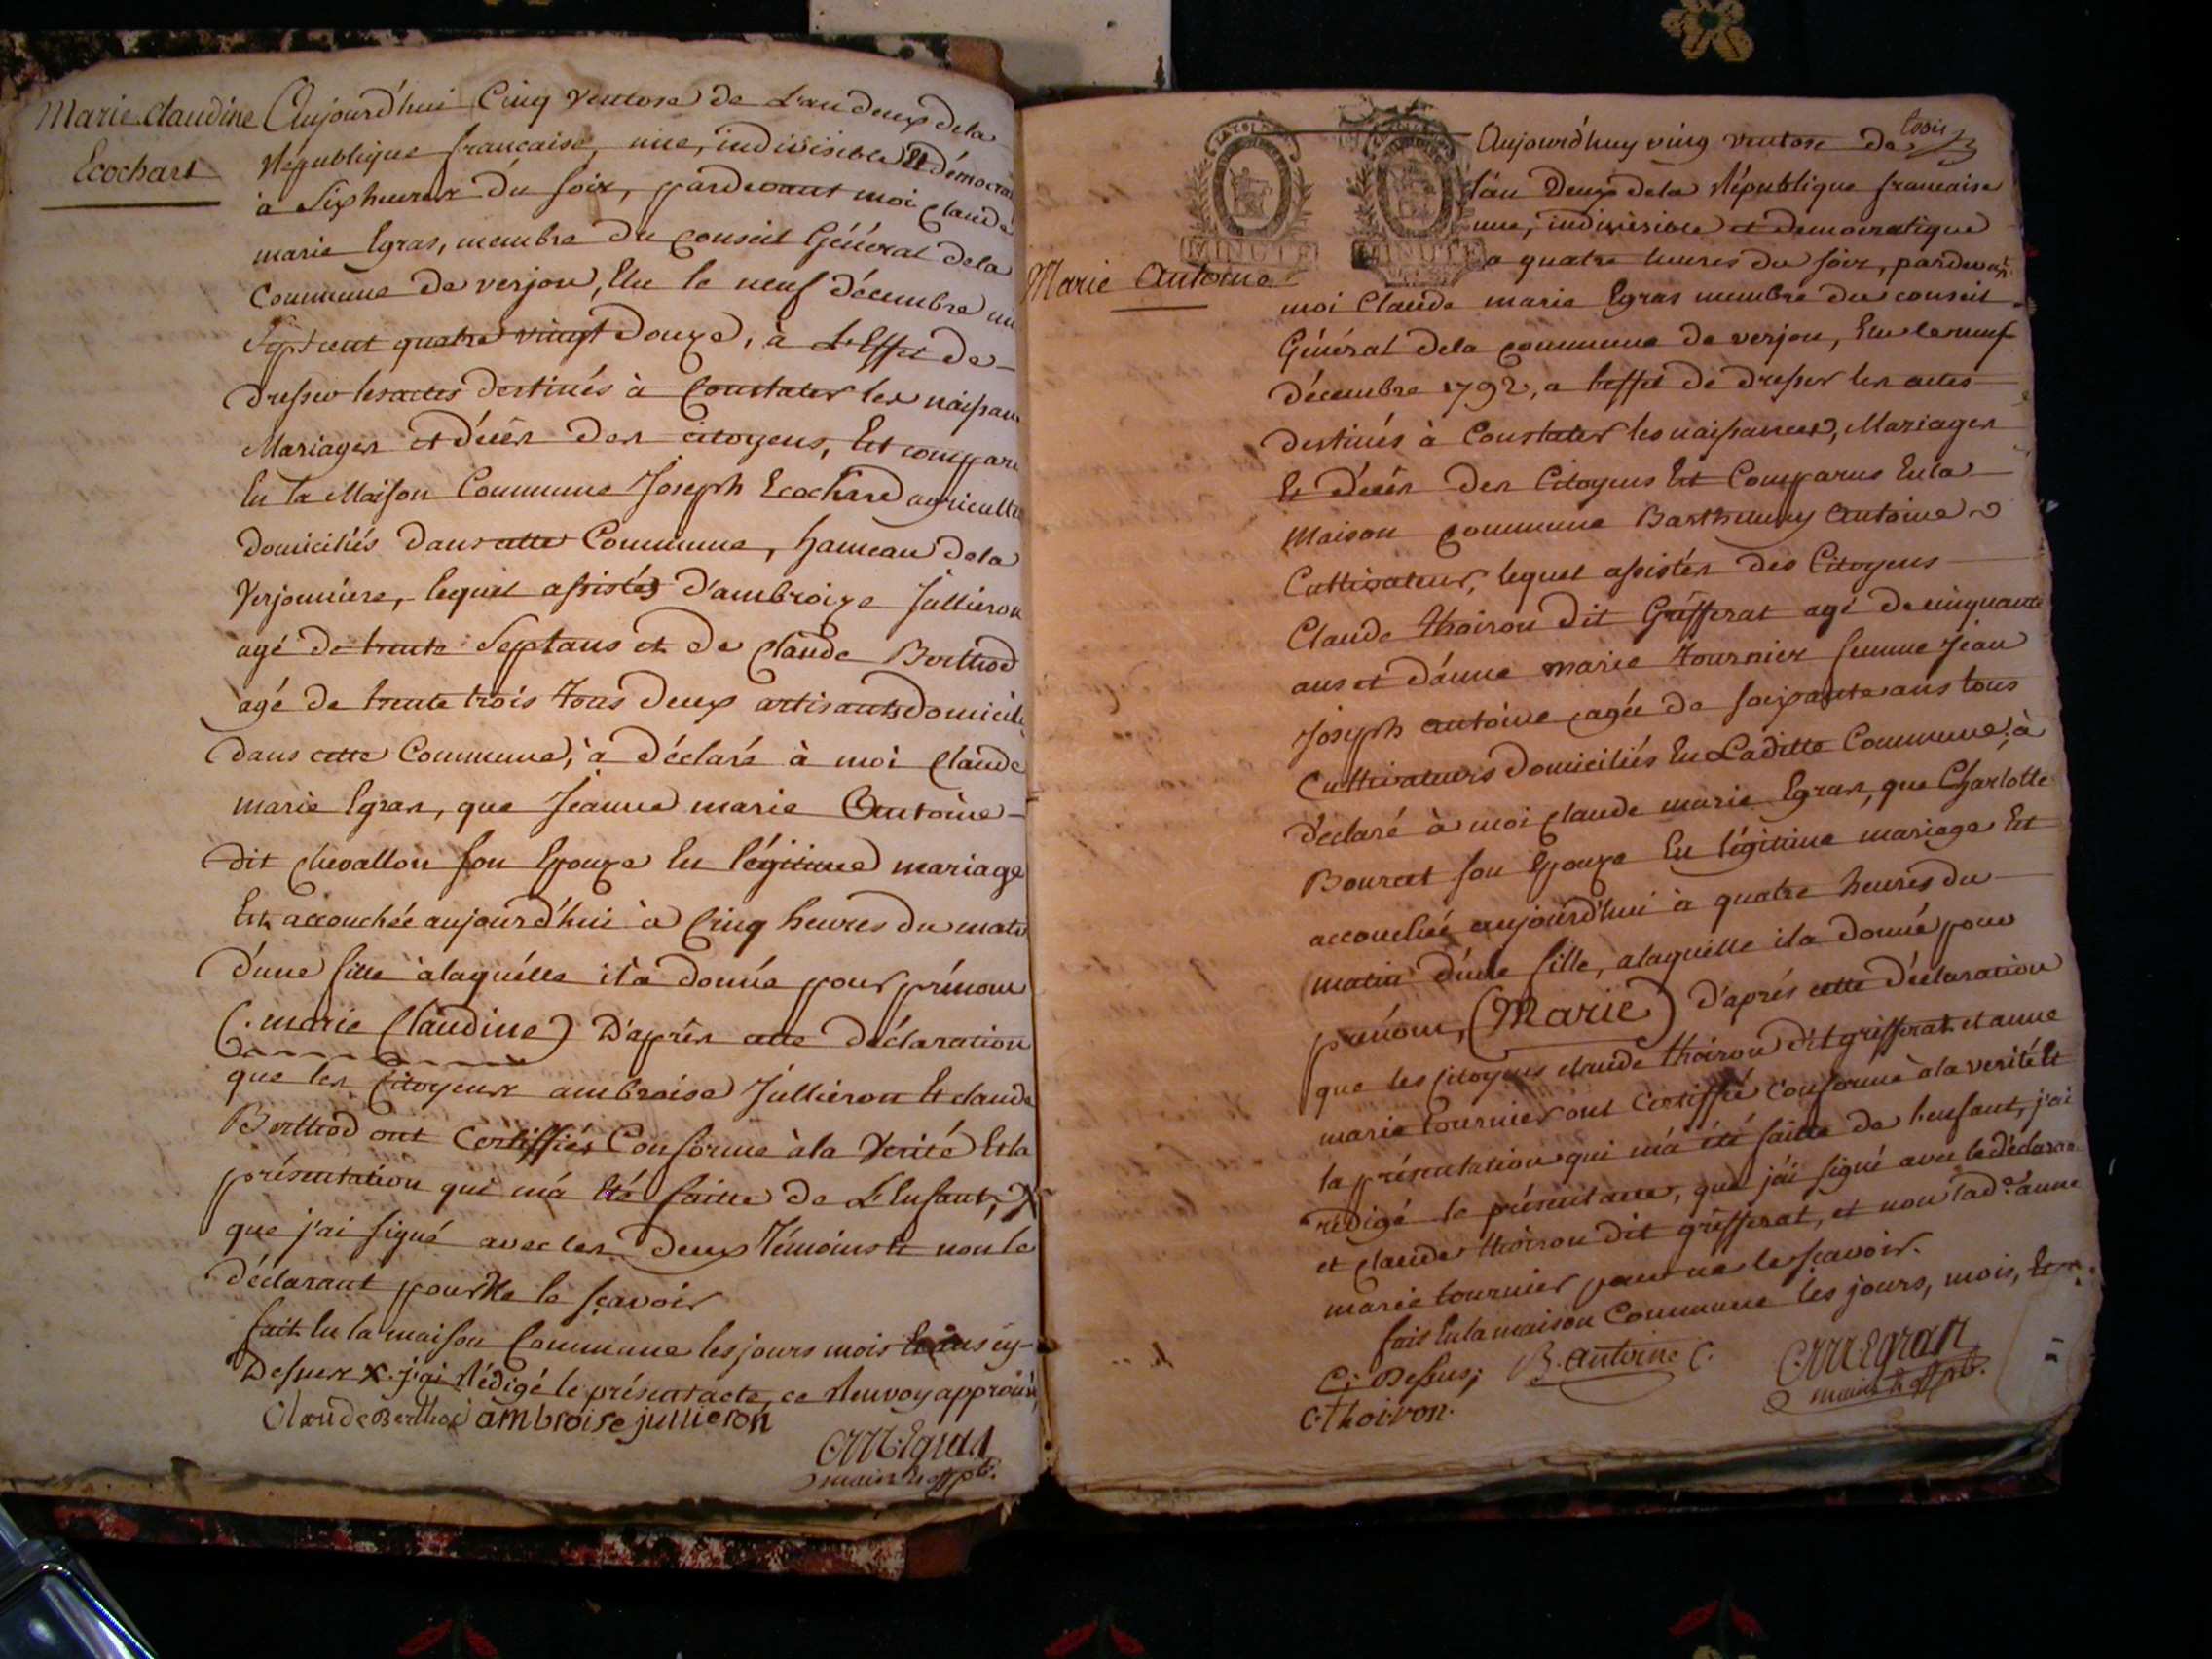 Marie Claudine
Ecochard
Aujourd'hui Cinq Ventose de L'an deux dela
République francaise, une, indivisible Et démocra
à Six heures du soir, pardevant moi Claude
marie Egras, membre du conseil Général dela
Commune de verjon, Elu le neuf décembre mil
Sept cent quatre vingt Douze, à L'Effet de
dresser les actes destinés à Constater les naissan
Mariages et décès des citoyens, Est compar
En la Maison Commune Joseph Ecochard agriculte
domiciliés dans cette Commune, hameau de la
Verjonnière, lequel assistés d'ambroize Jullieron
agé de trente Sept ans et de Claude Berthod
agé de trente trois tous deux artisants domicilié
dans cette Commune, à déclaré à moi Claude
marie Egras, que Jeanne marie Antoine
dit chevallon son Epouze En légitime mariage
Est accouchée aujourd'hui à Cinq heures du matin
d'une fille à laquélle il a donné pour prénom
(marie Claudine) D'après cette déclaration
que les Citoyens ambroise Jullieron Et claude
Berthod ont Certiffiés Conforme à la Verité Et la
présentation qui m'a Eté faitte de L'Enfant, X
que j'ai signé avec les deux Témoins et non le
déclarant pour Ne le sçavoir
fait En la maison Commune les jours mois Et ans cy-
Dessus X. j'ai Rédigé le présent acte, ce Renvoy approuvé
Claude Berthod ambroise jullieron
C.M. Egras
MINUTE
MINUTE
Marie Antoine
Aujourd'huy cinq ventose de
l'an Deux de la République francaise
une, indivisible et democratique
a quatre heures du soir, pardevant
moi Claude marie Egras membre du conseil
Général dela commune de verjon, Elu le neuf
décembre 1792, a l'effet de dresser les actes
destinés à Constater les naissances, Mariages
Et décès des Citoyens Est Comparus En la
Maison commune Barthelemy Antoine
Cultivateur, lequel assistés des Citoyens
Claude thoiron dit Gréfferat agé de cinquante
ans et d'anne marie tournier femme Jean
Joseph antoine agée de soixante ans tous
Cultivateurs domiciliés En Laditte Commune, à
déclaré à moi claude marie Egras, que Charlotte
Bourcet son Epouze En légitime mariage Est
accouchée aujourd'hui à quatre heures du
matin d'une fille, a laquélle il a donné pour
prénom, (Marie) d'aprés cette déclaration
que les citoyens claude thoiron dit grifferat et anne
marie tournier ont Certiffié Conforme à la verité Et
la présentation qui m'a été faitte de l'enfant, j'ai
rédigé le présent acte, que j'ai signé avec le déclaran
et claude thoiron dit grifferat, et non lad.e anne
marie tournier pour ne le sçavoir.
fait En la maison Commune les jours, mois, Et
Ci Dessus; B. Antoine C. C.M. Egras
C. Thoiron.